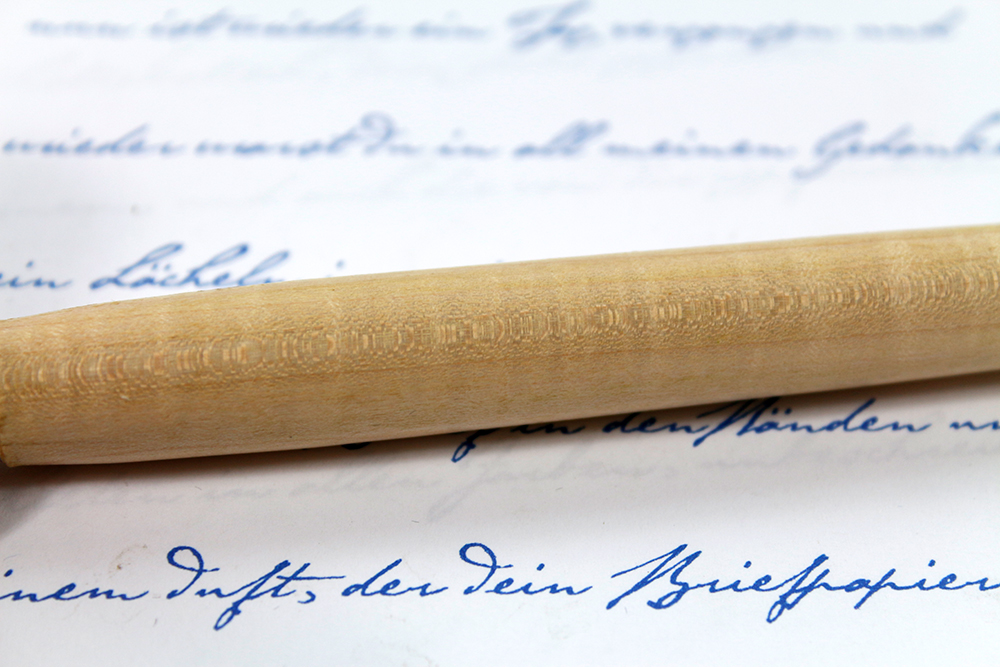 nun ist wieder ein Tag vergangen und
wieder warst Du in all meinen Gedanke
ein Lächeln
in den Händen un
inem Duft, der Dein Briefpapier